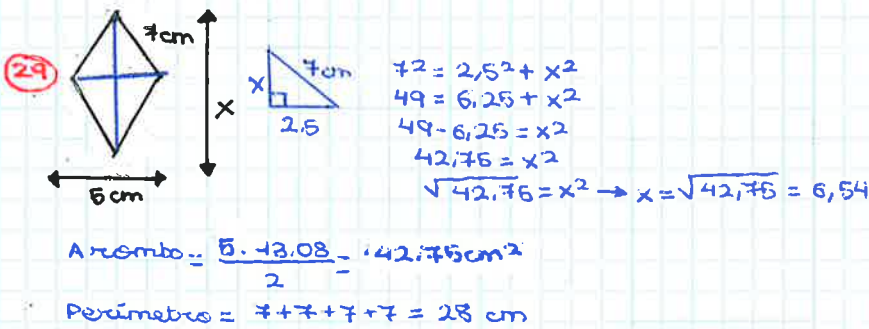 29
7cm
x
5 cm
x
7cm
2,5
7² = 2,5² + x²
49 = 6,25 + x²
49 - 6,25 = x²
42,75 = x²
√42,75 = x² → x = √42,75 = 6,54
A rombo = 5 . 13.08 / 2 = 42,75cm²
Perímetro = 7+7+7+7 = 28 cm